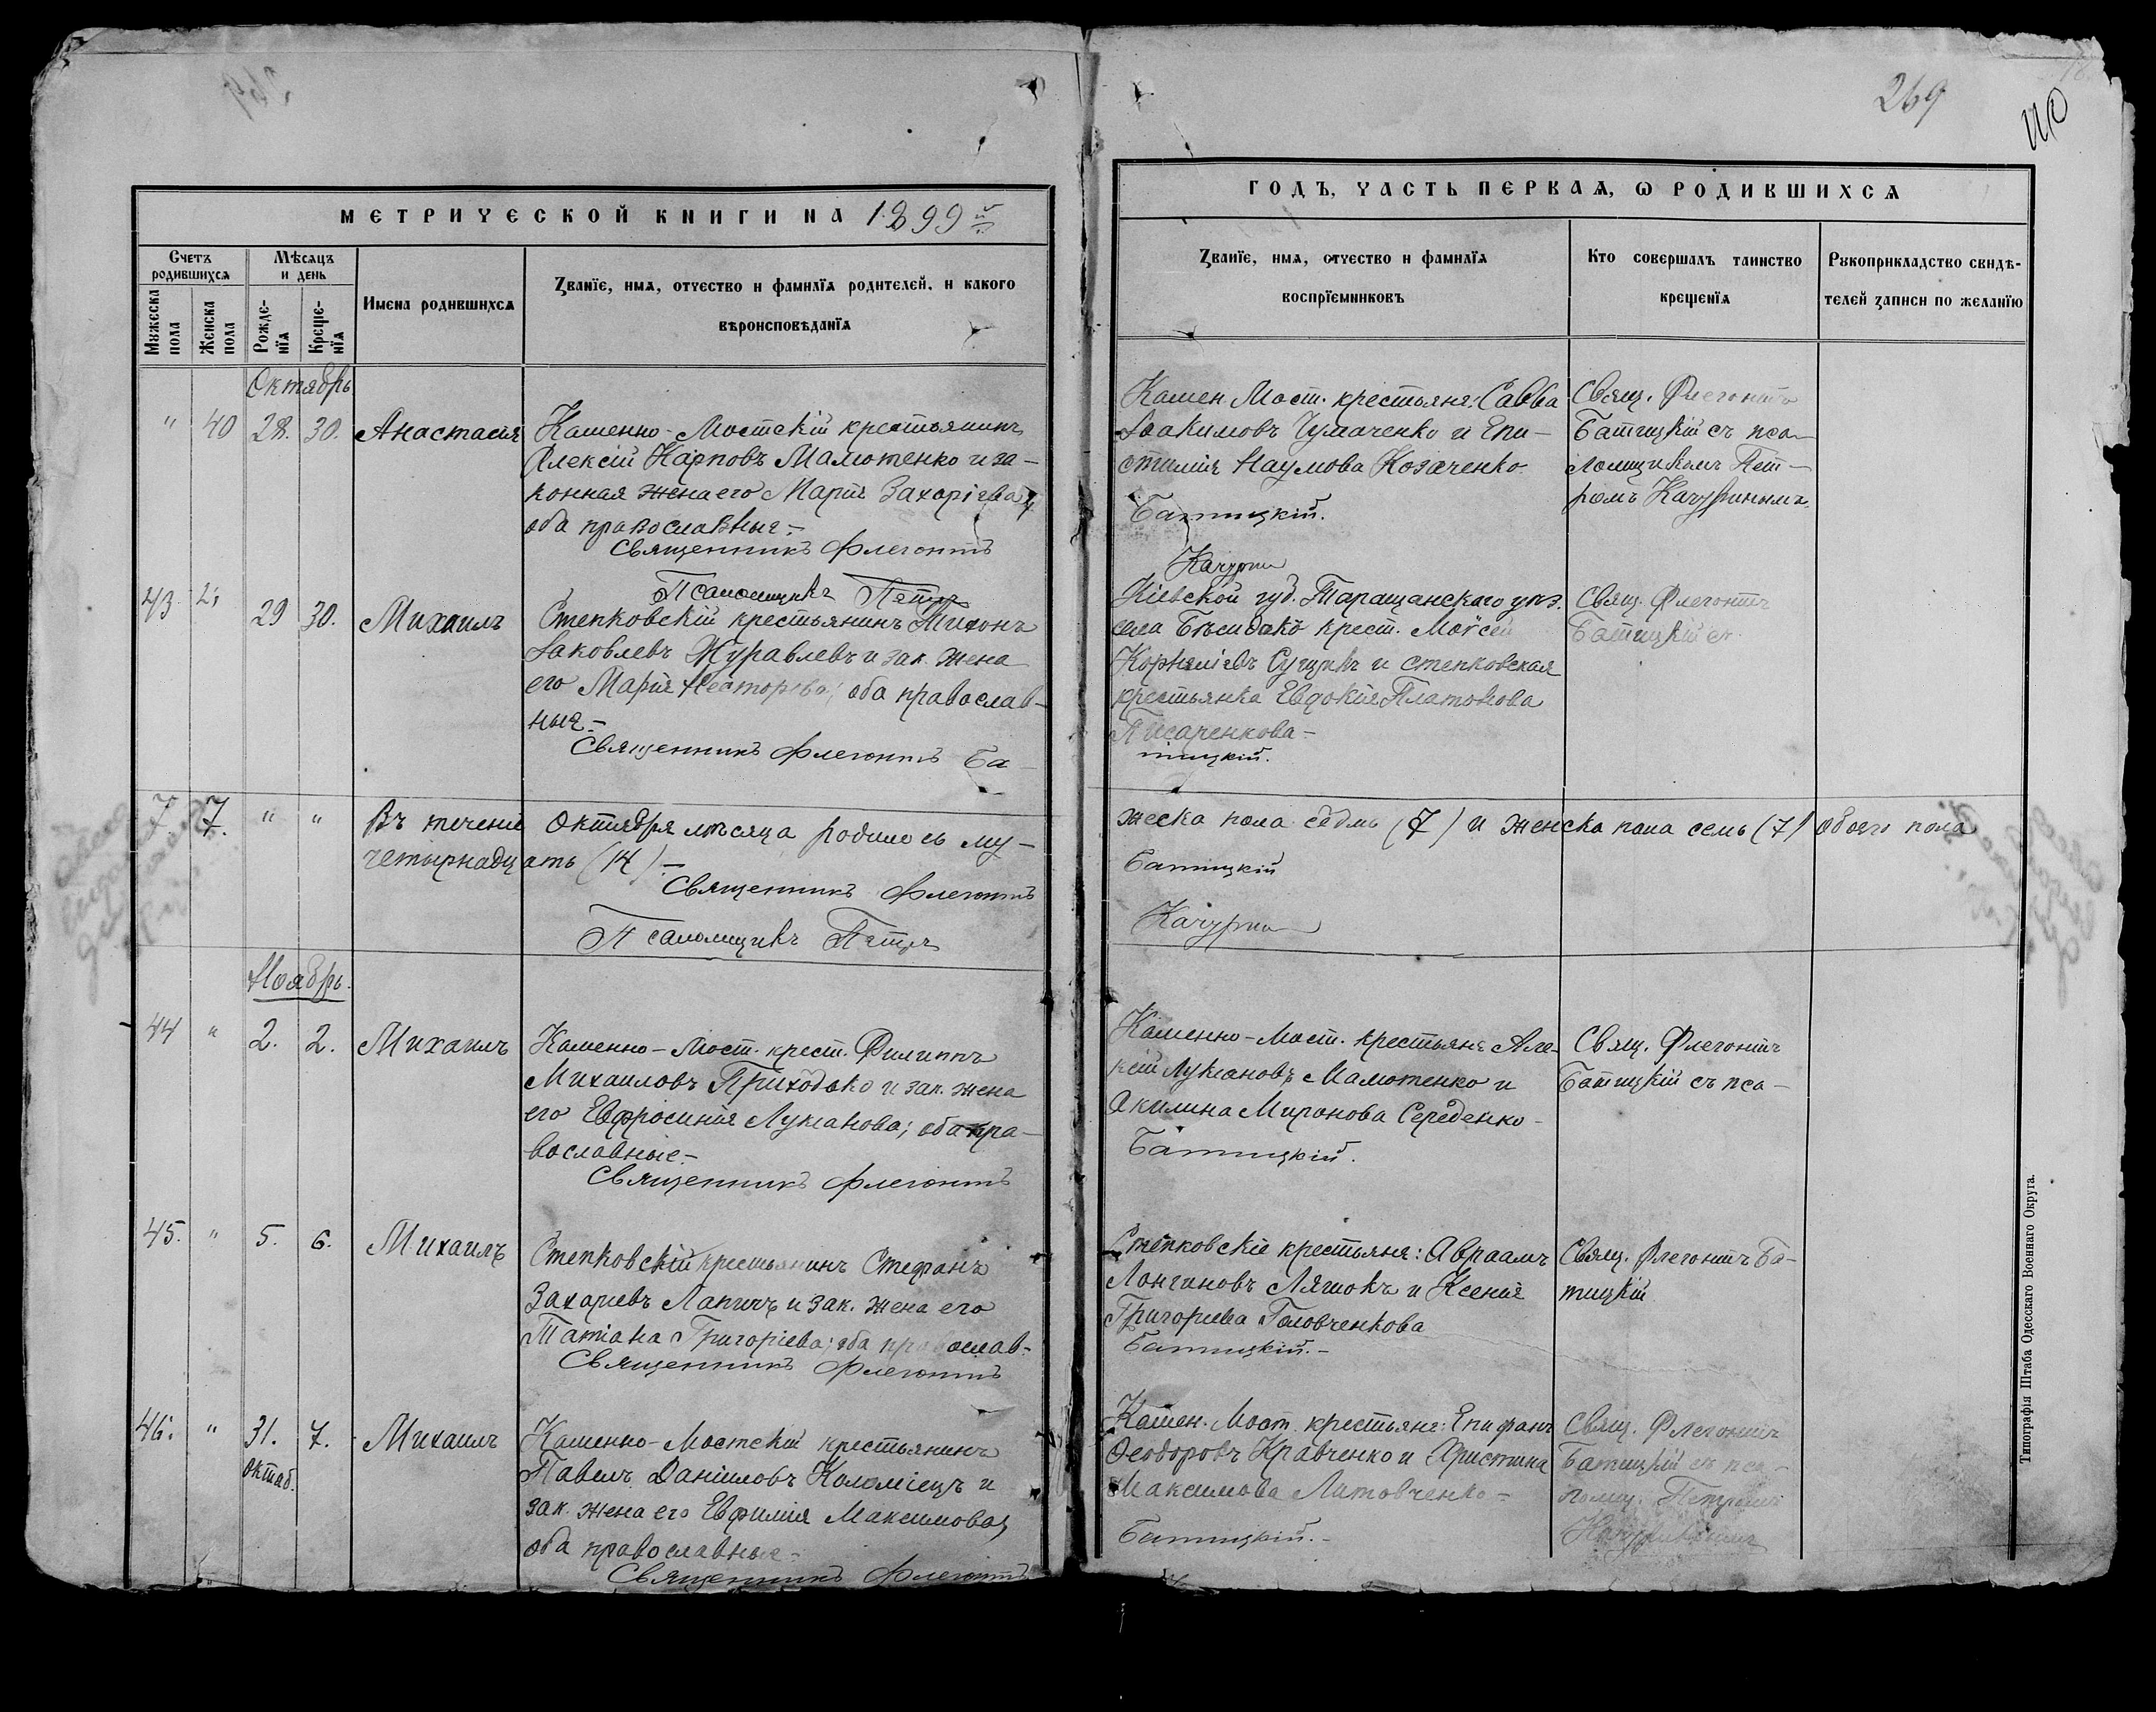 269
110
МЕТРИЧЕСКОЙ КНИГИ НА 1899й
Счетъ родившихся
Мѣсяцъ и день
Мужеска пола
Женска пола
Рожде-нія
Креще-нія
Имена родившихся
Званіе, имя, отчество и фамилія родителей, и какого
вѣроисповѣданія
Октябрь
" 40 28. 30. Анастасія
Каменно-Мостскій крестьянинъ
Алексій Карповъ Малютенко и за-
конная жена его Марія Захаріева,
оба православные.-
Священникъ Флегонтъ
Псаломщикъ Петръ
43 29 30. Михаилъ
Степковскій крестьянинъ Тихонъ
Іаковлевъ Журавлевъ и зак. жена
его Марія Несторова; оба православ-
ные.-
Священникъ Флегонтъ Ба-
7. 7. " " Въ теченіе Октября мѣсяца родилось му-
четырнадцать (14).-
Священникъ Флегонтъ
Псаломщикъ Петръ
Ноябрь.
44 " 2. 2. Михаилъ
Каменно-Мост. крест. Филиппъ
Михаиловъ Приходько и зак. жена
его Евфросинія Лукіанова; оба пра-
вославные.-
Священникъ Флегонтъ
45. " 5. 6. Михаилъ
Степковскій крестьянинъ Стефанъ
Захаріевъ Лапичъ и зак. жена его
Татіана Григоріева; оба православ.-
Священникъ Флегонтъ
46. " 31. октяб. 7. Михаилъ
Каменно-Мостскій крестьянинъ
Павелъ Даніиловъ Коломіецъ и
зак. жена его Евфимія Максимова,
оба православные.-
Священникъ Флегонтъ
ГОДЪ, ЧАСТЬ ПЕРВАЯ, Ѡ РОДИВШИХСЯ
Званіе, имя, отчество и фамилія
воспріемниковъ
Кто совершалъ таинство
крещенія
Рукоприкладство свидѣ-
телей записи по желанію
Камен. Мост. крестьяне: Савва
Іоакимовъ Чумаченко и Епи-
стимія Наумова Козаченко
Батицкій.
Качурин
Свящ. Флегонтъ
Батицкій съ пса-
ломщикомъ Пет-
ромъ Качуринымъ.
Кіевской губ. Таращанскаго уѣз.
села Бѣсидокъ крест. Моѵсей
Корниліевъ и степковская
крестьянка Евдокія Платонова
Писаренкова-
тицкій.
Свящ. Флегонтъ
Батицкій съ
жеска пола седмь (7) и женска пола семь (7) обоего пола
Батицкій
Качурин
Каменно-Мост. крестьяне Але-
ксій Лукіановъ Малютенко и
Акилина Миронова Середенко-
Батицкій.
Свящ. Флегонтъ
Батицкій съ пса-
Степковскіе крестьяне: Авраамъ
Лонгиновъ Ляшокъ и Ксенія
Григоріева Головченкова
Батицкій.-
Свящ. Флегонтъ Ба-
тицкій
Камен. Мост. крестьяне: Епифанъ
Ѳеодоровъ Кравченко и Христина
Максимова Литовченко-
Батицкій.-
Свящ. Флегонтъ
Батицкій съ пса-
ломщ. Петромъ
Качуринымъ
Типографія Штаба Одесскаго Военнаго Округа.